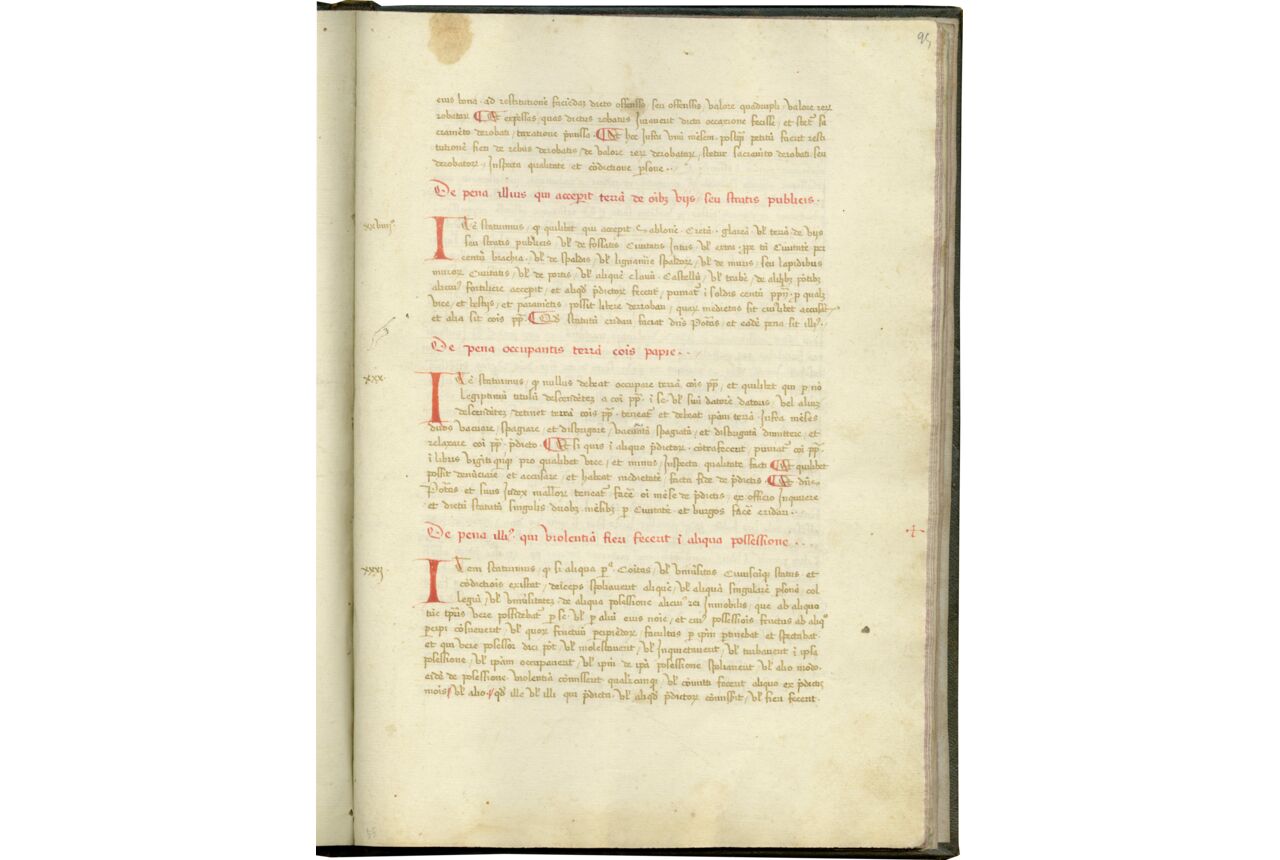 95
eius bona ad restitutionē faciēdaz dicto offensso seu offenssis valore quadrupli valore rerꝝ
robatarꝝ Et expessas quas dictus robatus Iuraverit dicta occaxione fecisse et stetꝰ sa
cramēto derobati taxatione p̄missa Et hec Infra vnū mēsem postqꝫ petitū fuerit resti
tutionē fieri de rebus derobatis de valore rerꝝ derobatarꝝ stetur sacram̄to derobati seu
derobatorꝝ Inspecta qualitate et cōdictione p̱sone
De pena illius qui acceperit terrā de oībꝫ vijs seu stratis publicis
xxviiijͦ
Itē statuimus qꝫ quilibet qui acceperit sablonē Cretā glareā vl' terrā de vijs
seu stratis publicis vl' de fossatis Civitatis Intus vl' extra Civitatē per
centū brachia vl' de spaldis vl' lignamīe spaldorꝝ vl' de muris seu lapidibus
murorꝝ Civitatis vl' de portis vl' aliquē clavū Castellū vl' trabē de aliqbꝫ pōtibꝫ
alicuiꝰ fortilicie acceperit et aliqd p̄dictorꝝ fecerit puniatꝰ ī soldis centū pp̄ p̱ qualꝫ
vice et bestijs et paramētis possit libere derrobari quaꝝ medietas sit cuiꝰlibet accusātꝭ
et alia sit cōis pp̄ Qd statutū cridari faciat dn̄s Potās et eadē pena sit illiꝰ
De pena occupantis terrā cōis papie
xxx
Itē statuimus qꝫ nullus debeat occupare terrā cōis pp̄ et quilibet qui p̱ nō
legiptimū titulū descendētez a cōi pp̄ ī se vl' suū datorē datoris vel aliuꝫ
descendētez detinet terrā cōis pp̄ teneatꝰ et debeat ip̄am terrā Infra mēses
duos vacuare spagiare et disbrigare vacuatā spagiatā et disbrigatā dimittere et
relaxare cōi pp̄ p̄dicto Et si quis ī aliquo p̄dictorꝝ cōtrafecerit puniatꝰ cōi pp̄
ī libris vigīti qīqꝫ pro qualibet vice et minus Inspecta qualitate facti Et quilibet
possit denūciare et accusare et habeat medietatē facta fide de p̄dictis Et dn̄s
Potās et suus Iudex malloꝝ teneatꝰ facē oī mēse de p̄dictis ex officio Inquirere
et dictū statutū singulis duobꝫ mēsibꝫ p̱ Civitatē et burgos facē cridari
De pena illiꝰ qui violentiā fieri fecerit ī aliqua possessione
xxxj
Item statuimus qꝫ si aliqua p̱ᵃ Cōitas vl' vniūsitas Cuiuscūqꝫ status et
cōdictiōis existat deīceps spoliaverit aliquē vl' aliquā singularē p̱sonā col
legiū vl' vniūsitatez de aliqua posessione alicuiꝰ rei Inmobilis que ab aliquo
tūc tp̱ris vere possidebatꝰ p̱ se vl' p̱ aliū eius noīe et cuiꝰ possessiōis fructus ab aliqͦ
p̱cipi cōsueverīt vl' quorꝝ fructuū p̱cipiēdorꝝ facultas p̱ ip̄m p̱tinebat et spectabat
et qui vere posessor dici pōt vl' molestaverit vl' Inquietaverit vl' turbaverit ī ip̄sa
posessione vl' ip̄am occupaverit vl' ip̄m de ip̄a posessione spoliaverit vl' alio modo
eidē de posessione violentiā cōmisserit qualicūqꝫ vl' cōmitti fecerit aliquo ex p̄dictis
mōis vl' alio qd ille vl' illi qui p̄dicta vl' aliqd p̄dictorꝝ cōmissit vl' fieri fecerit